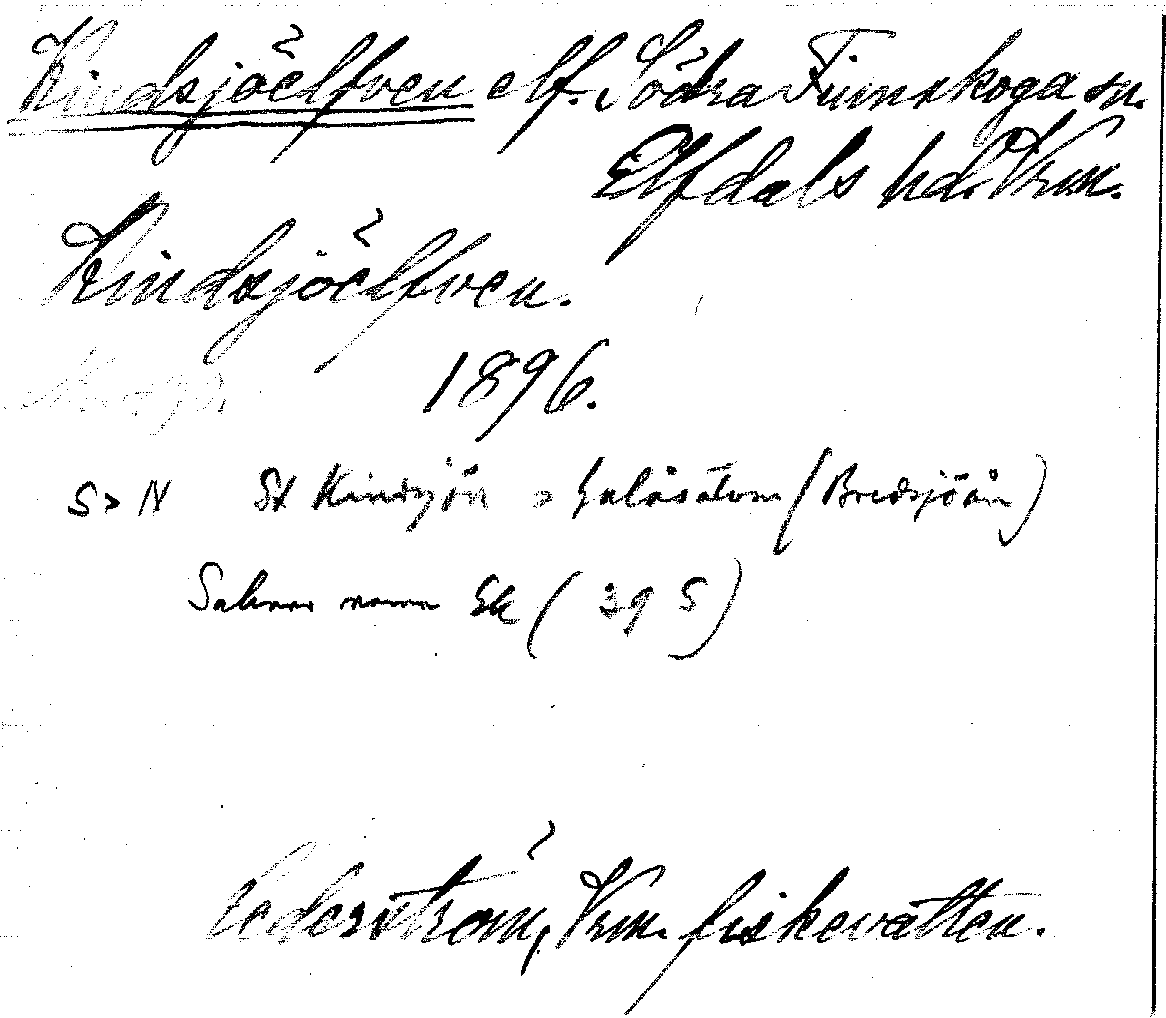 Kindsjöelfven elf. Södra Finnskoga sn.
Elfdals hd. Vrm.
Kindsjöelfven.
1896.
S > N St Kindsjön > (Bredsjöån)
Saknar namn Ek (39 S)
Cederström, Vrm. fiskevatten.